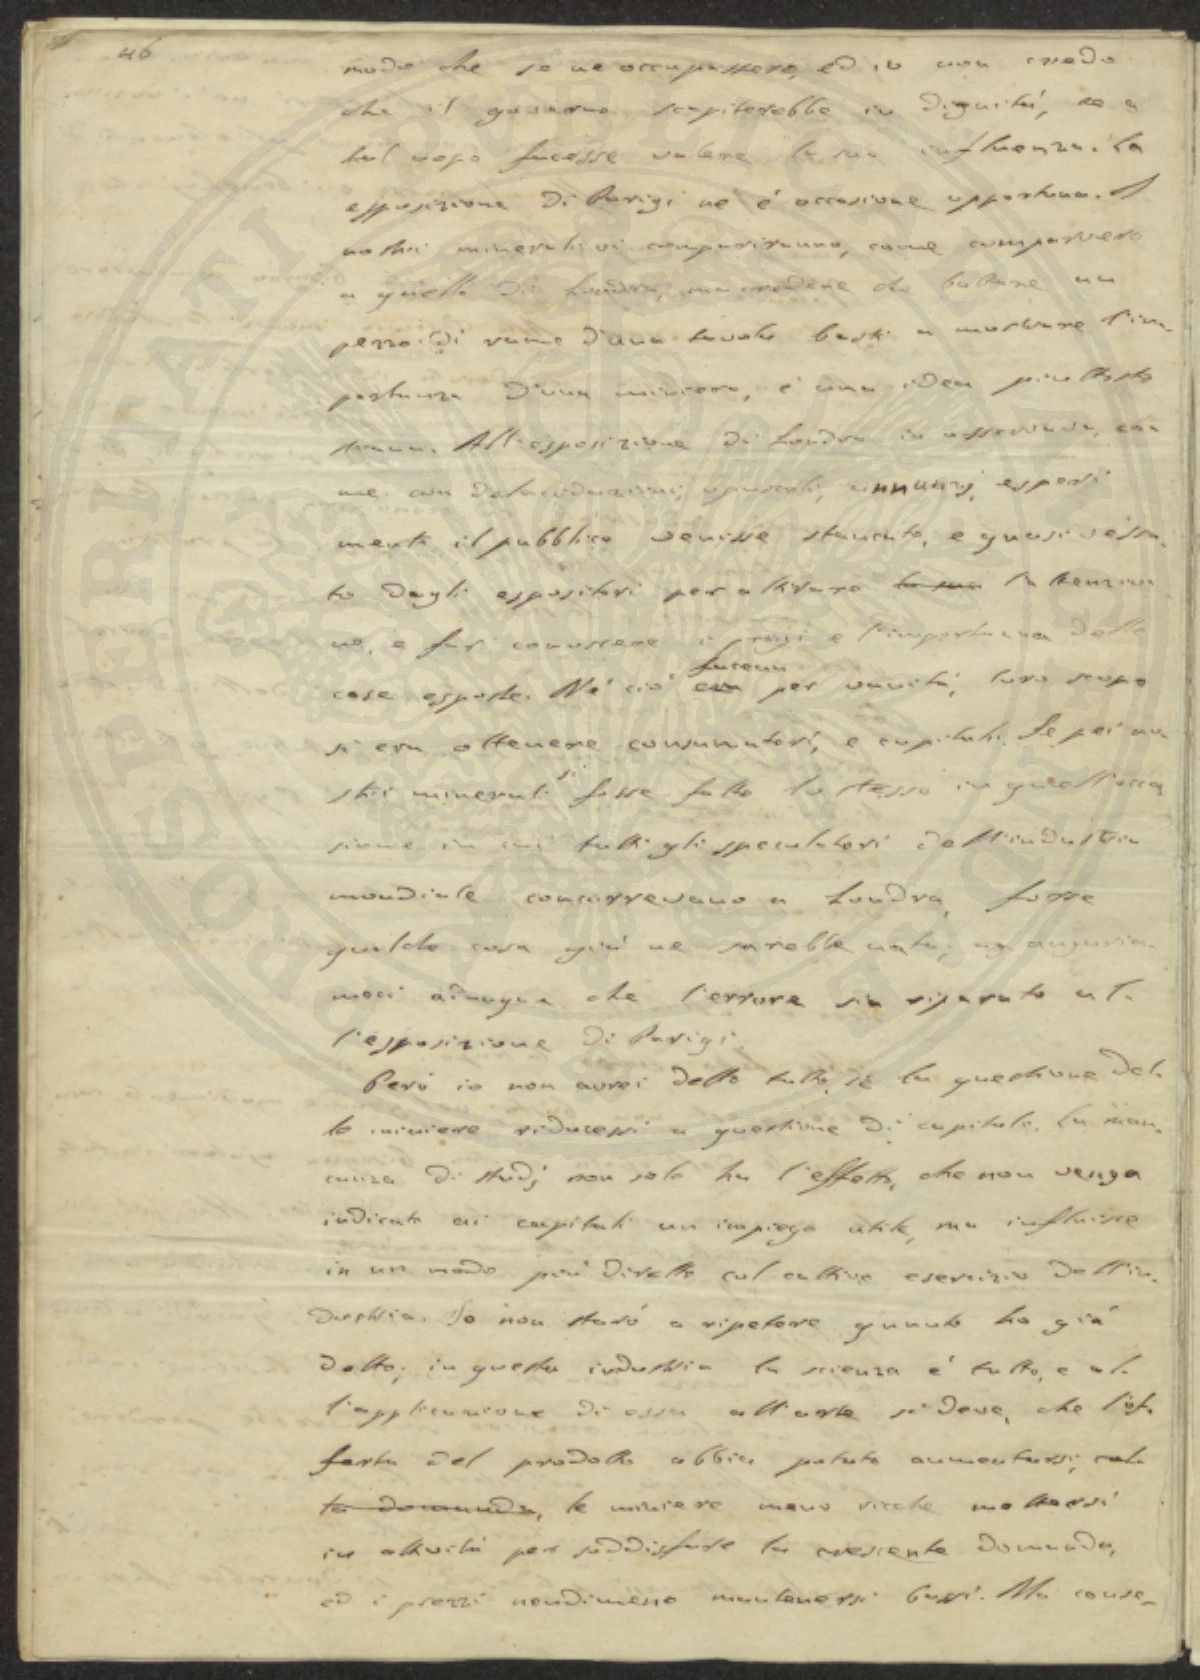 46
modo che se ne occupassero, ed io non credo
che il governo scapiterebbe in dignità, se a
tal uopo facesse valere la sua influenza. La
esposizione di Parigi ne è occasione opportuna. I
nostri minerali vi compariranno, come comparvero
a quella di Londra, ma credere che bastare un
pezzo di rame d'una tavola basti a mostrare l'im-
portanza d'una miniera, è una idea piuttosto
strana. All'esposizione di Londra io osservava, co
me con delucidazioni, opuscoli, annunzj, esperi
menti il pubblico venisse stancato, e quasi vessa-
to dagli espositori per attirare la sua l'attenzio
ne, e far conoscere i pregi e l'importanza delle
cose esposte. Nè ciò era facean per vanità, loro scopo
si era ottenere consumatori, e capitali. Se pei no
stri minerali si fosse fatto lo stesso in quell'occa
sione in cui tutti gli speculatori dell'industria
mondiale concorrevano a Londra, forse
qualche cosa già ne sarebbe nata; auguria-
moci adunque che l'errore sia riparato al-
l'esposizione di Parigi.
Però io non avrei detto tutto, se la questione del-
le miniere riducessi a questione di capitale. La man-
canza di studj non solo ha l'effetto, che non venga
indicato ai capitali un impiego utile, ma influisce
in un modo più diretto col cattivo esercizio dell'in-
dustria. Io non starò a ripetere quanto ho già
detto; in questa industria la scienza è tutto, e al-
l'applicazione di essa all'arte si deve, che l'of-
ferta del prodotto abbia potuto aumentarsi, col-
la domanda, le miniere meno ricche mettersi
in attività per soddisfare la crescente domanda,
ed i prezzi nondimeno mantenersi bassi. Ma conse-
PROSPERITATI PUBLICAE